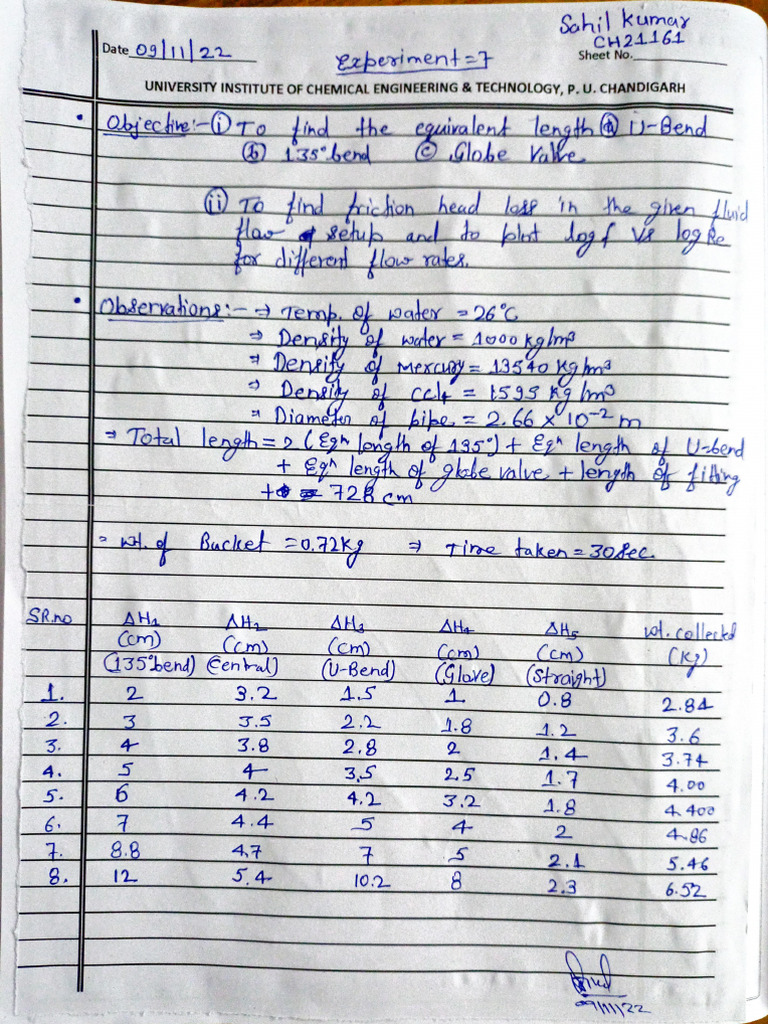 Sahil Kumar
CH21161
Date 09/11/22
Experiment = 7
Sheet No.
UNIVERSITY INSTITUTE OF CHEMICAL ENGINEERING & TECHNOLOGY, P. U. CHANDIGARH
• Objective:- (i) To find the equivalent length (a) U-Bend
(b) 135° bend (c) Globe Valve
(ii) To find friction head loss in the given fluid
flow setup and to plot log f Vs log Re
for different flow rates.
• Observations:- ⇒ Temp. of water = 26°C
⇒ Density of water = 1000 kg/m³
⇒ Density of Mercury = 13540 kg/m³
⇒ Density of CCl4 = 1595 kg/m³
⇒ Diameter of pipe = 2.66 × 10⁻² m
⇒ Total length = 2 (Eqⁿ length of 135°) + Eqⁿ length of U-bend
+ Eqⁿ length of globe valve + length of fitting
+ = 728 cm
= wt. of Bucket = 0.72kg ⇒ Time taken = 30 sec.
SR.no ΔH1 ΔH2 ΔH3 ΔH4 ΔH5 wt. collected
(cm) (cm) (cm) (cm) (cm) (Kg)
(135° bend) (Central) (U-Bend) (Glove) (Straight)
1. 2 3.2 1.5 1 0.8 2.84
2. 3 3.5 2.2 1.8 1.2 3.6
3. 4 3.8 2.8 2 1.4 3.74
4. 5 4 3.5 2.5 1.7 4.00
5. 6 4.2 4.2 3.2 1.8 4.400
6. 7 4.4 5 4 2 4.86
7. 8.8 4.7 7 5 2.1 5.46
8. 12 5.4 10.2 8 2.3 6.52
09/11/22